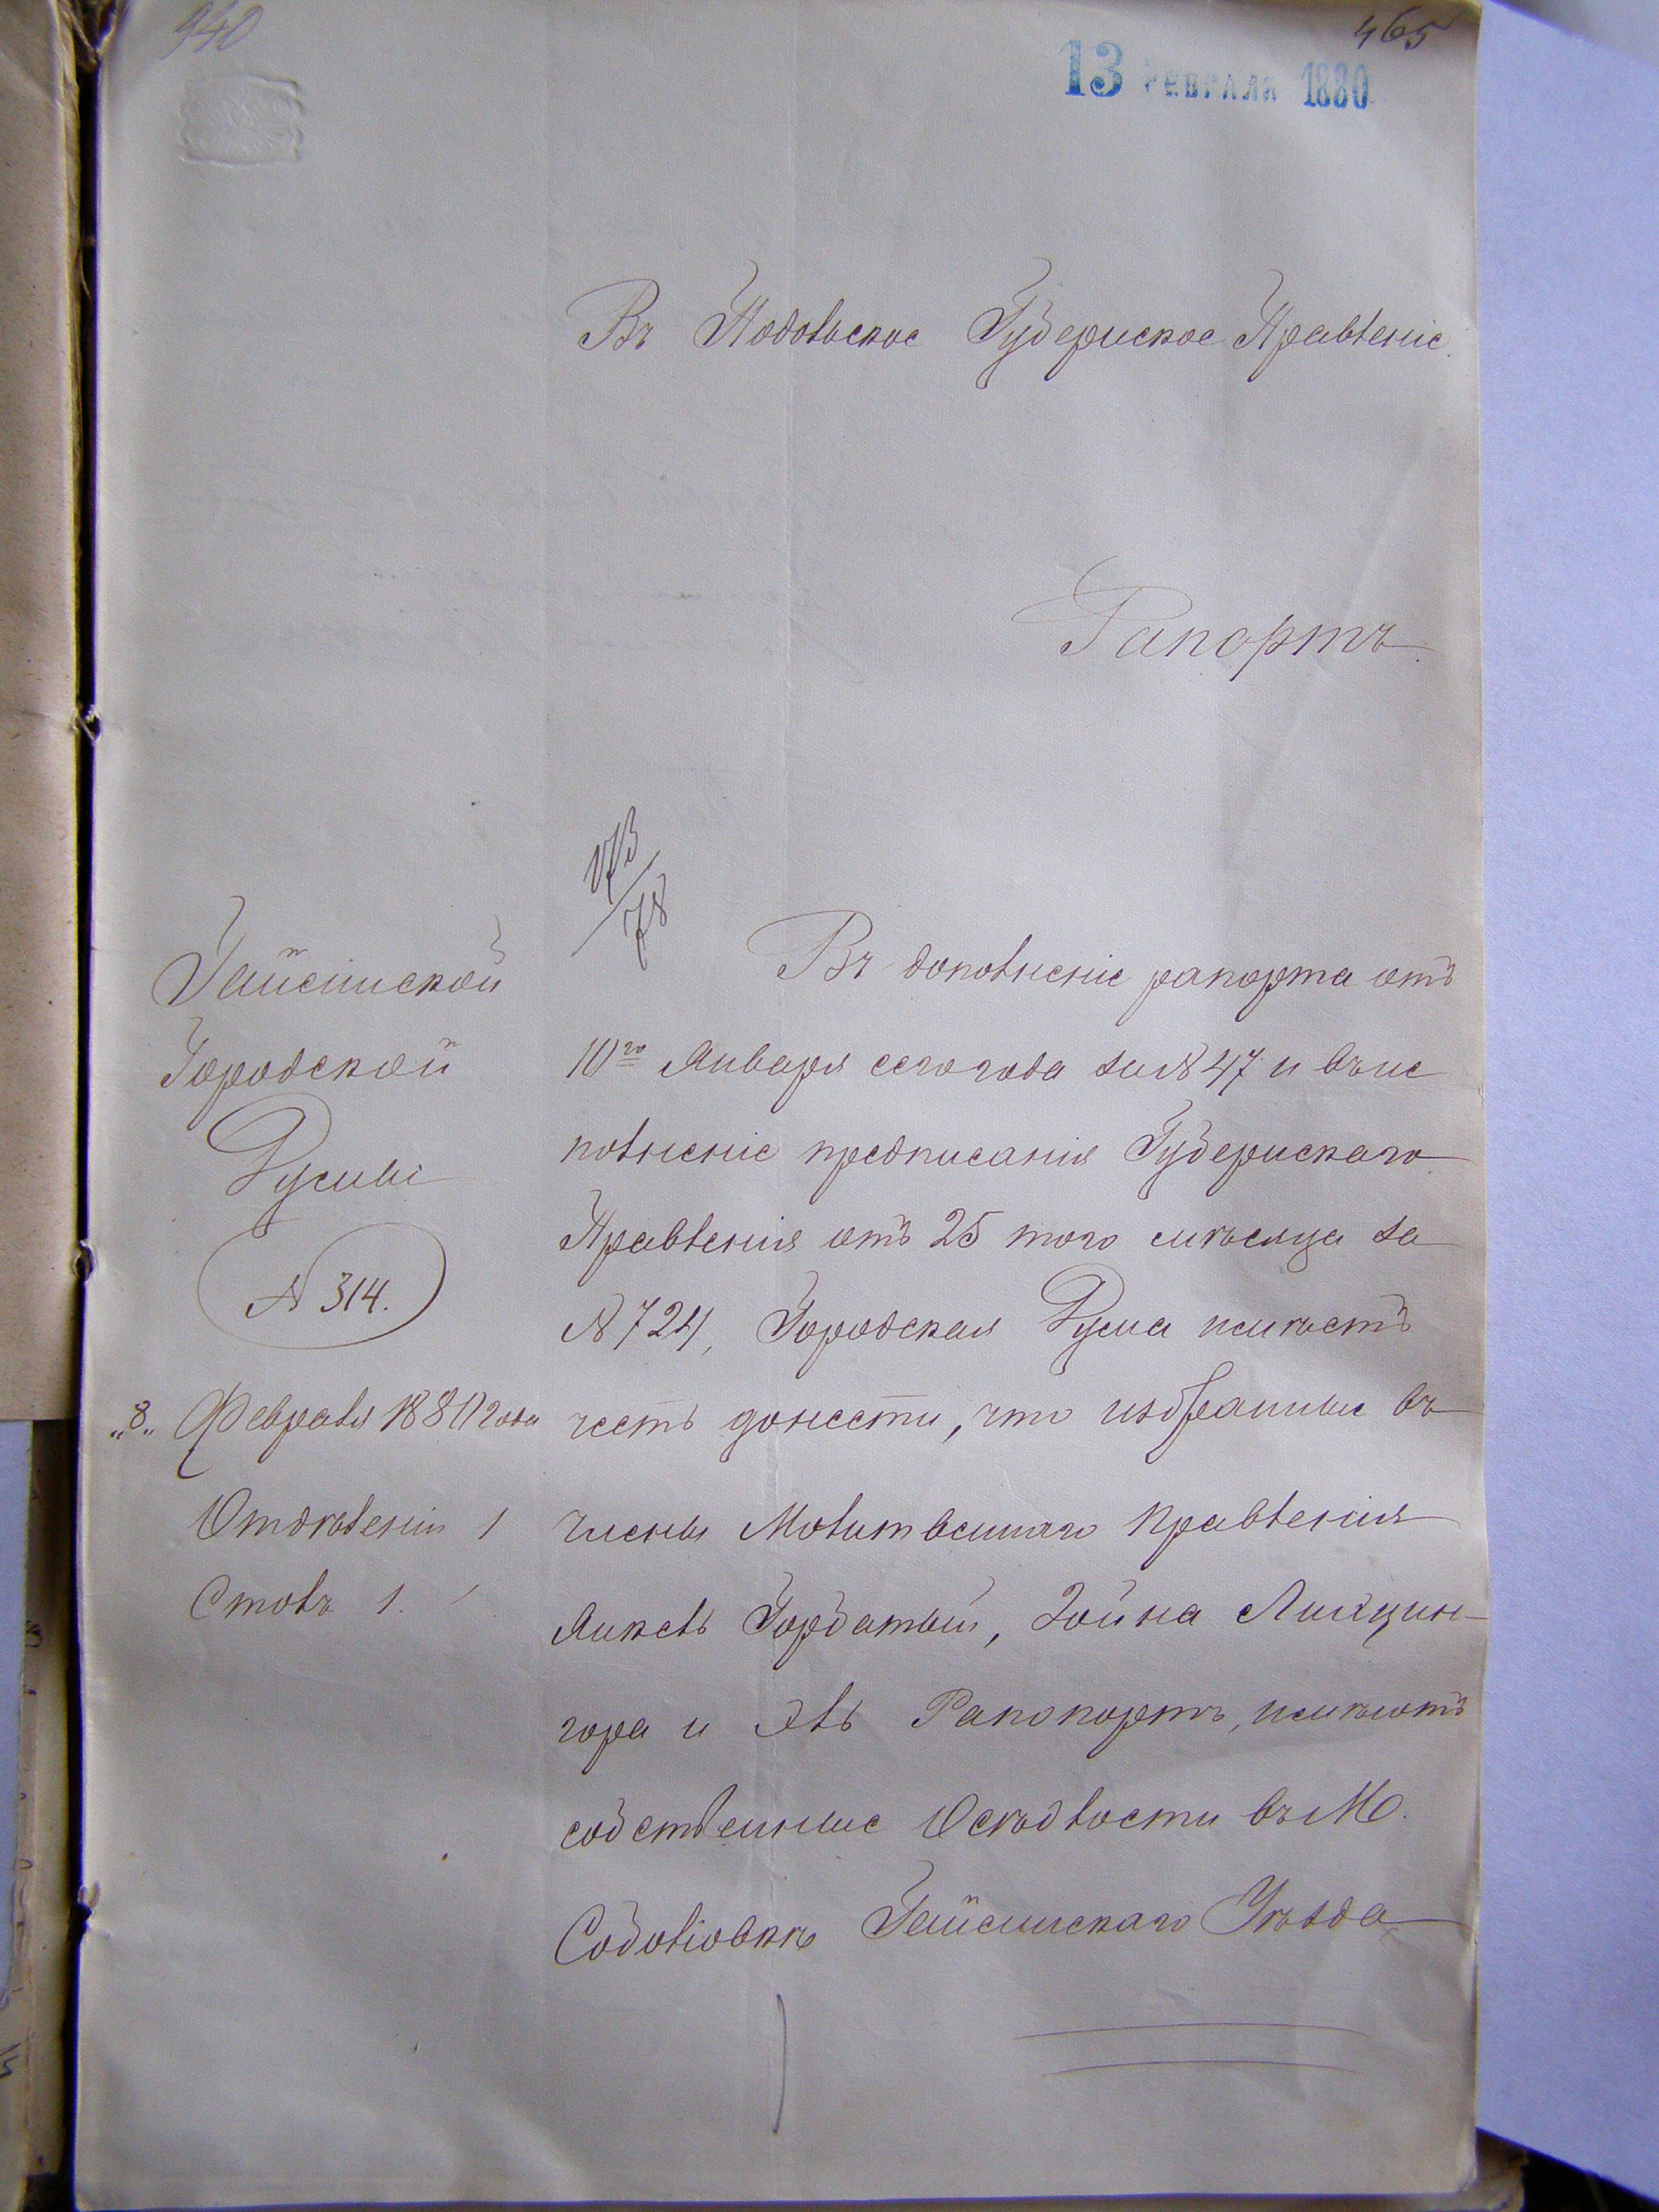 940
465
13 ФЕВРАЛЯ 1880
Въ Подольское Губернское Правленіе.
Рапортъ.
173/78
Гайсинской
Городской
Думы
№ 314.
„8„ Февраля 1880 года
Отделенія 1
Столъ 1.
Въ дополненіе рапорта отъ
10го Января сего года за № 47 и въ ис
полненіе предписанія Губернскаго
Правленія отъ 25 того мѣсяца за
№ 724, Городская Дума имѣетъ
честь донести, что избранные въ
члены Молитвеннаго правленія
Анкель Горбатый, Зойна
гора и Эль Рапопортъ, имѣютъ
собственные Осѣдлости въ М.
Соболіовкѣ Гайсинскаго Уѣзда